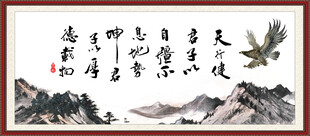 天行健
君子以
自强不
息地势
坤君
子以厚
德载物